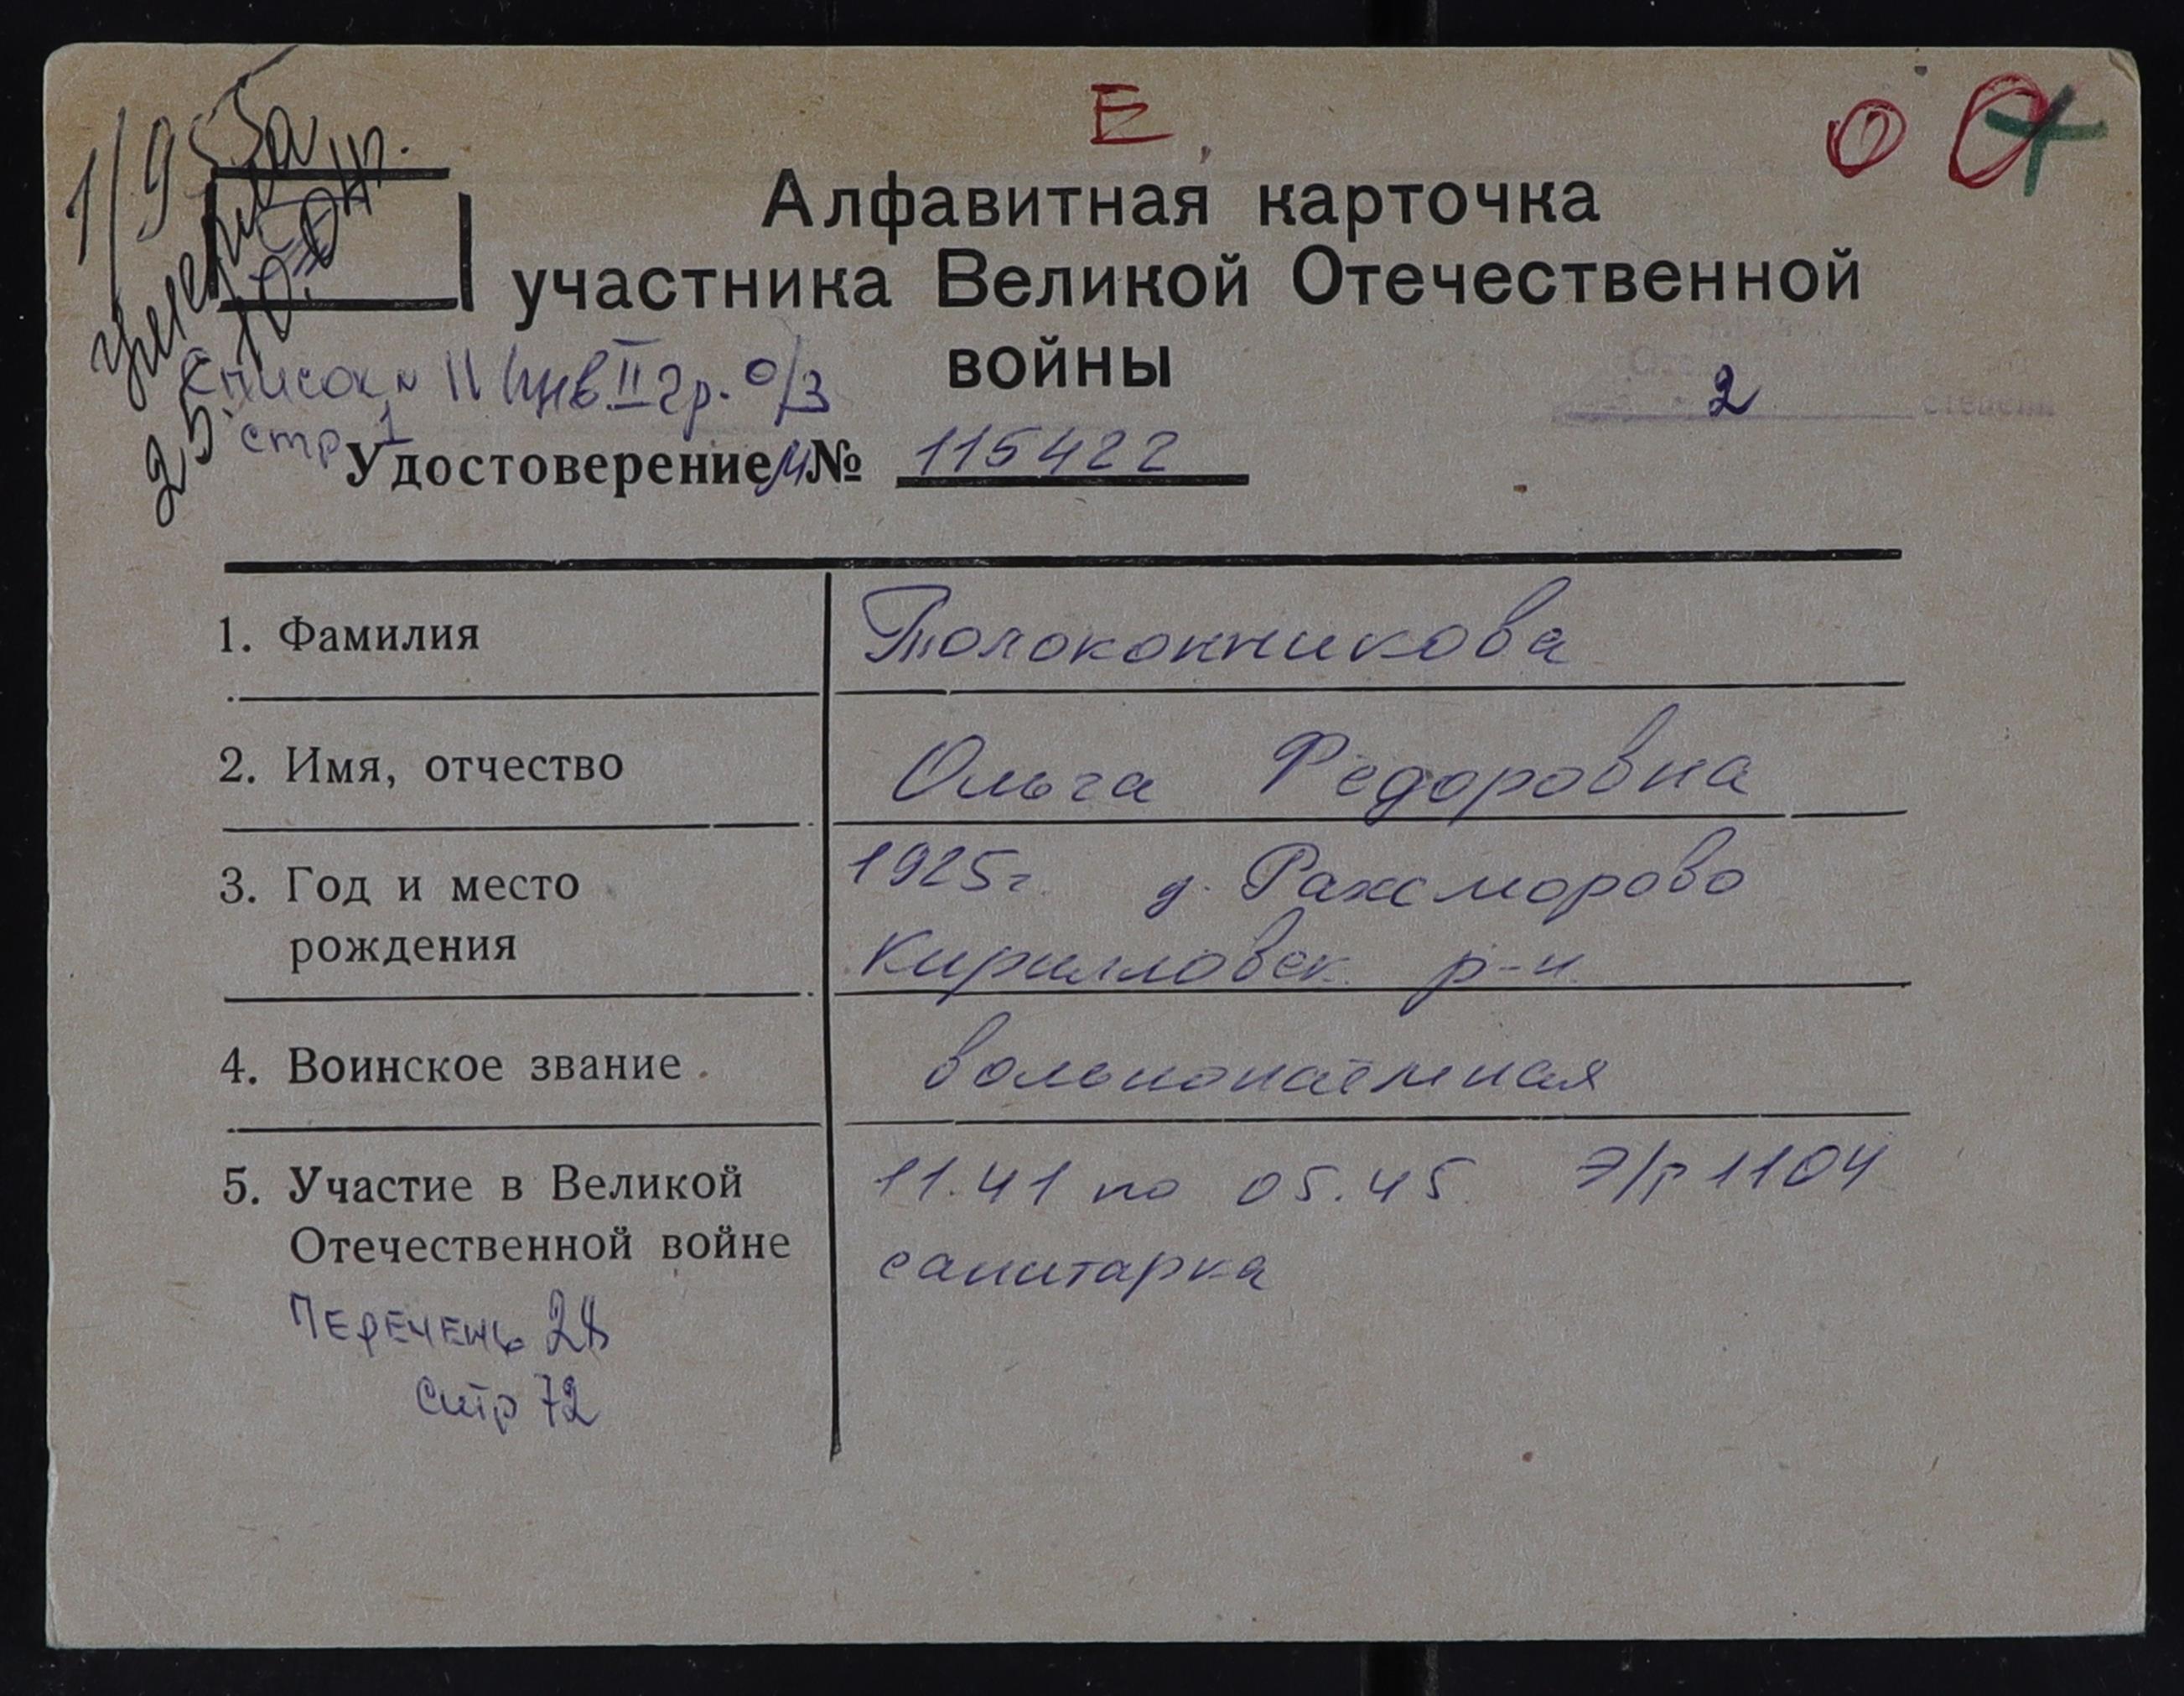 Е
О О+
1/955а
умерла
25.10.04г.
Алфавитная карточка
участника Великой Отечественной
войны
Список № 11 Инв II гр. о/з
стр 1
2
степени
Удостоверение И № 115422
1. Фамилия Толоконникова
2. Имя, отчество Ольга Федоровна
3. Год и место 1925г. д. Раксморово
рождения Кирилловск р-н
4. Воинское звание вольнонаёмная
5. Участие в Великой 11.41 по 05.45 Э/г 1104
Отечественной войне санитарка
Перечень 28
Стр 72